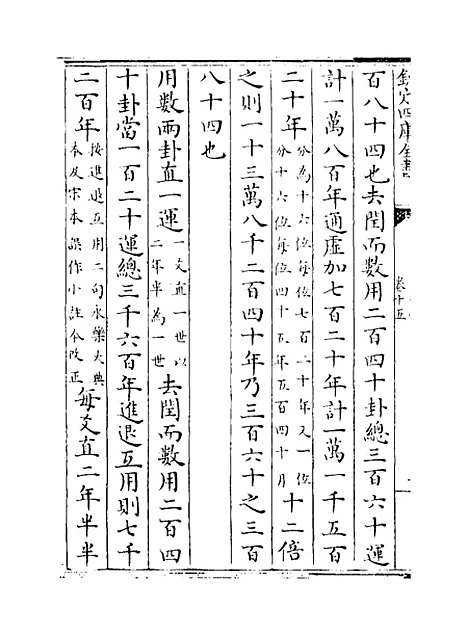 欽定四庫全書
卷十五
百八十四也去閏而數用二百四十卦總三百六十運
計一萬八百年通虛加七百二十年計一萬一千五百
二十年分為十六位每位七百二十年又一位分十六位每位四十五年五百四十月十二倍
之則一十三萬八千二百四十年乃三百六十之三百
八十四也
用數兩卦直一運一爻直一世以二年半為一世去閏而數用二百四
十卦當一百二十運總三千六百年進退互用則七千
二百年按進退互用二句永樂大典本及宋本誤作小註今改正每爻直二年半半